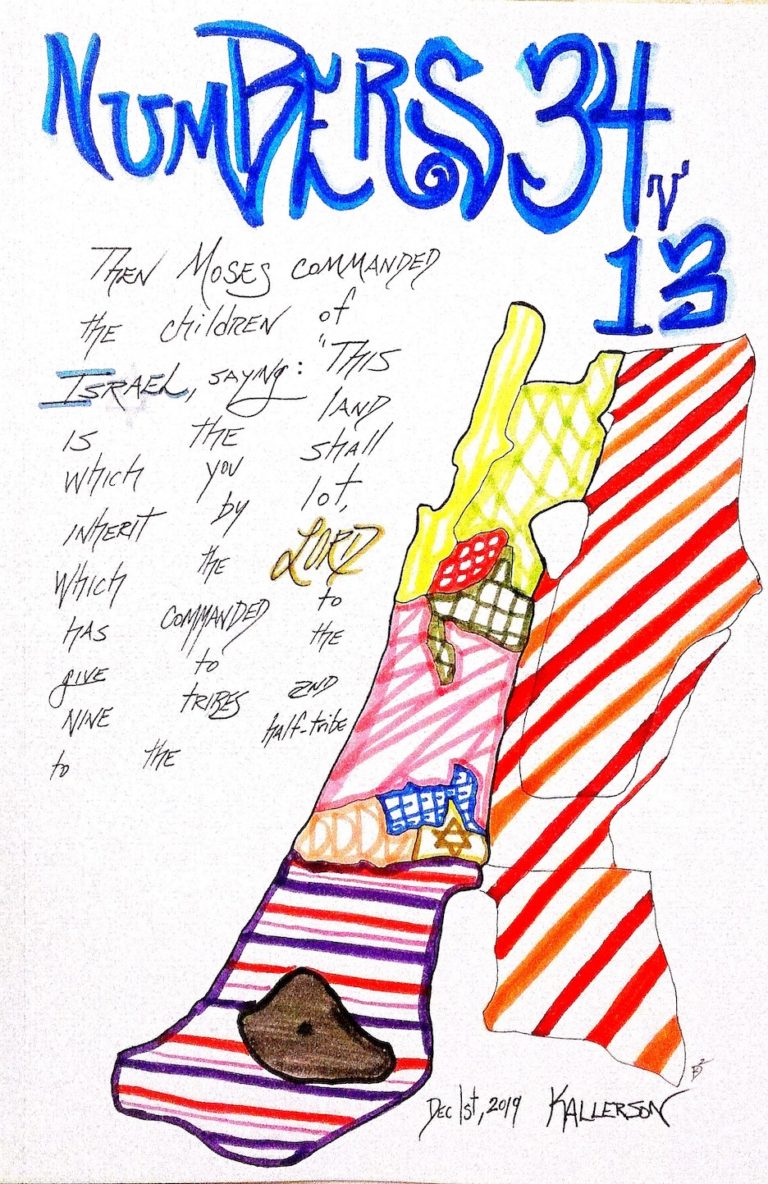 NUMBERS 34
v
13
Then Moses commanded
the children of
Israel, saying: "This
is the land
which you shall
inherit by lot,
which the LORD
has commanded to
give to the
nine tribes 2nd
to the half-tribe
Dec 1st, 2019 KALLERSON